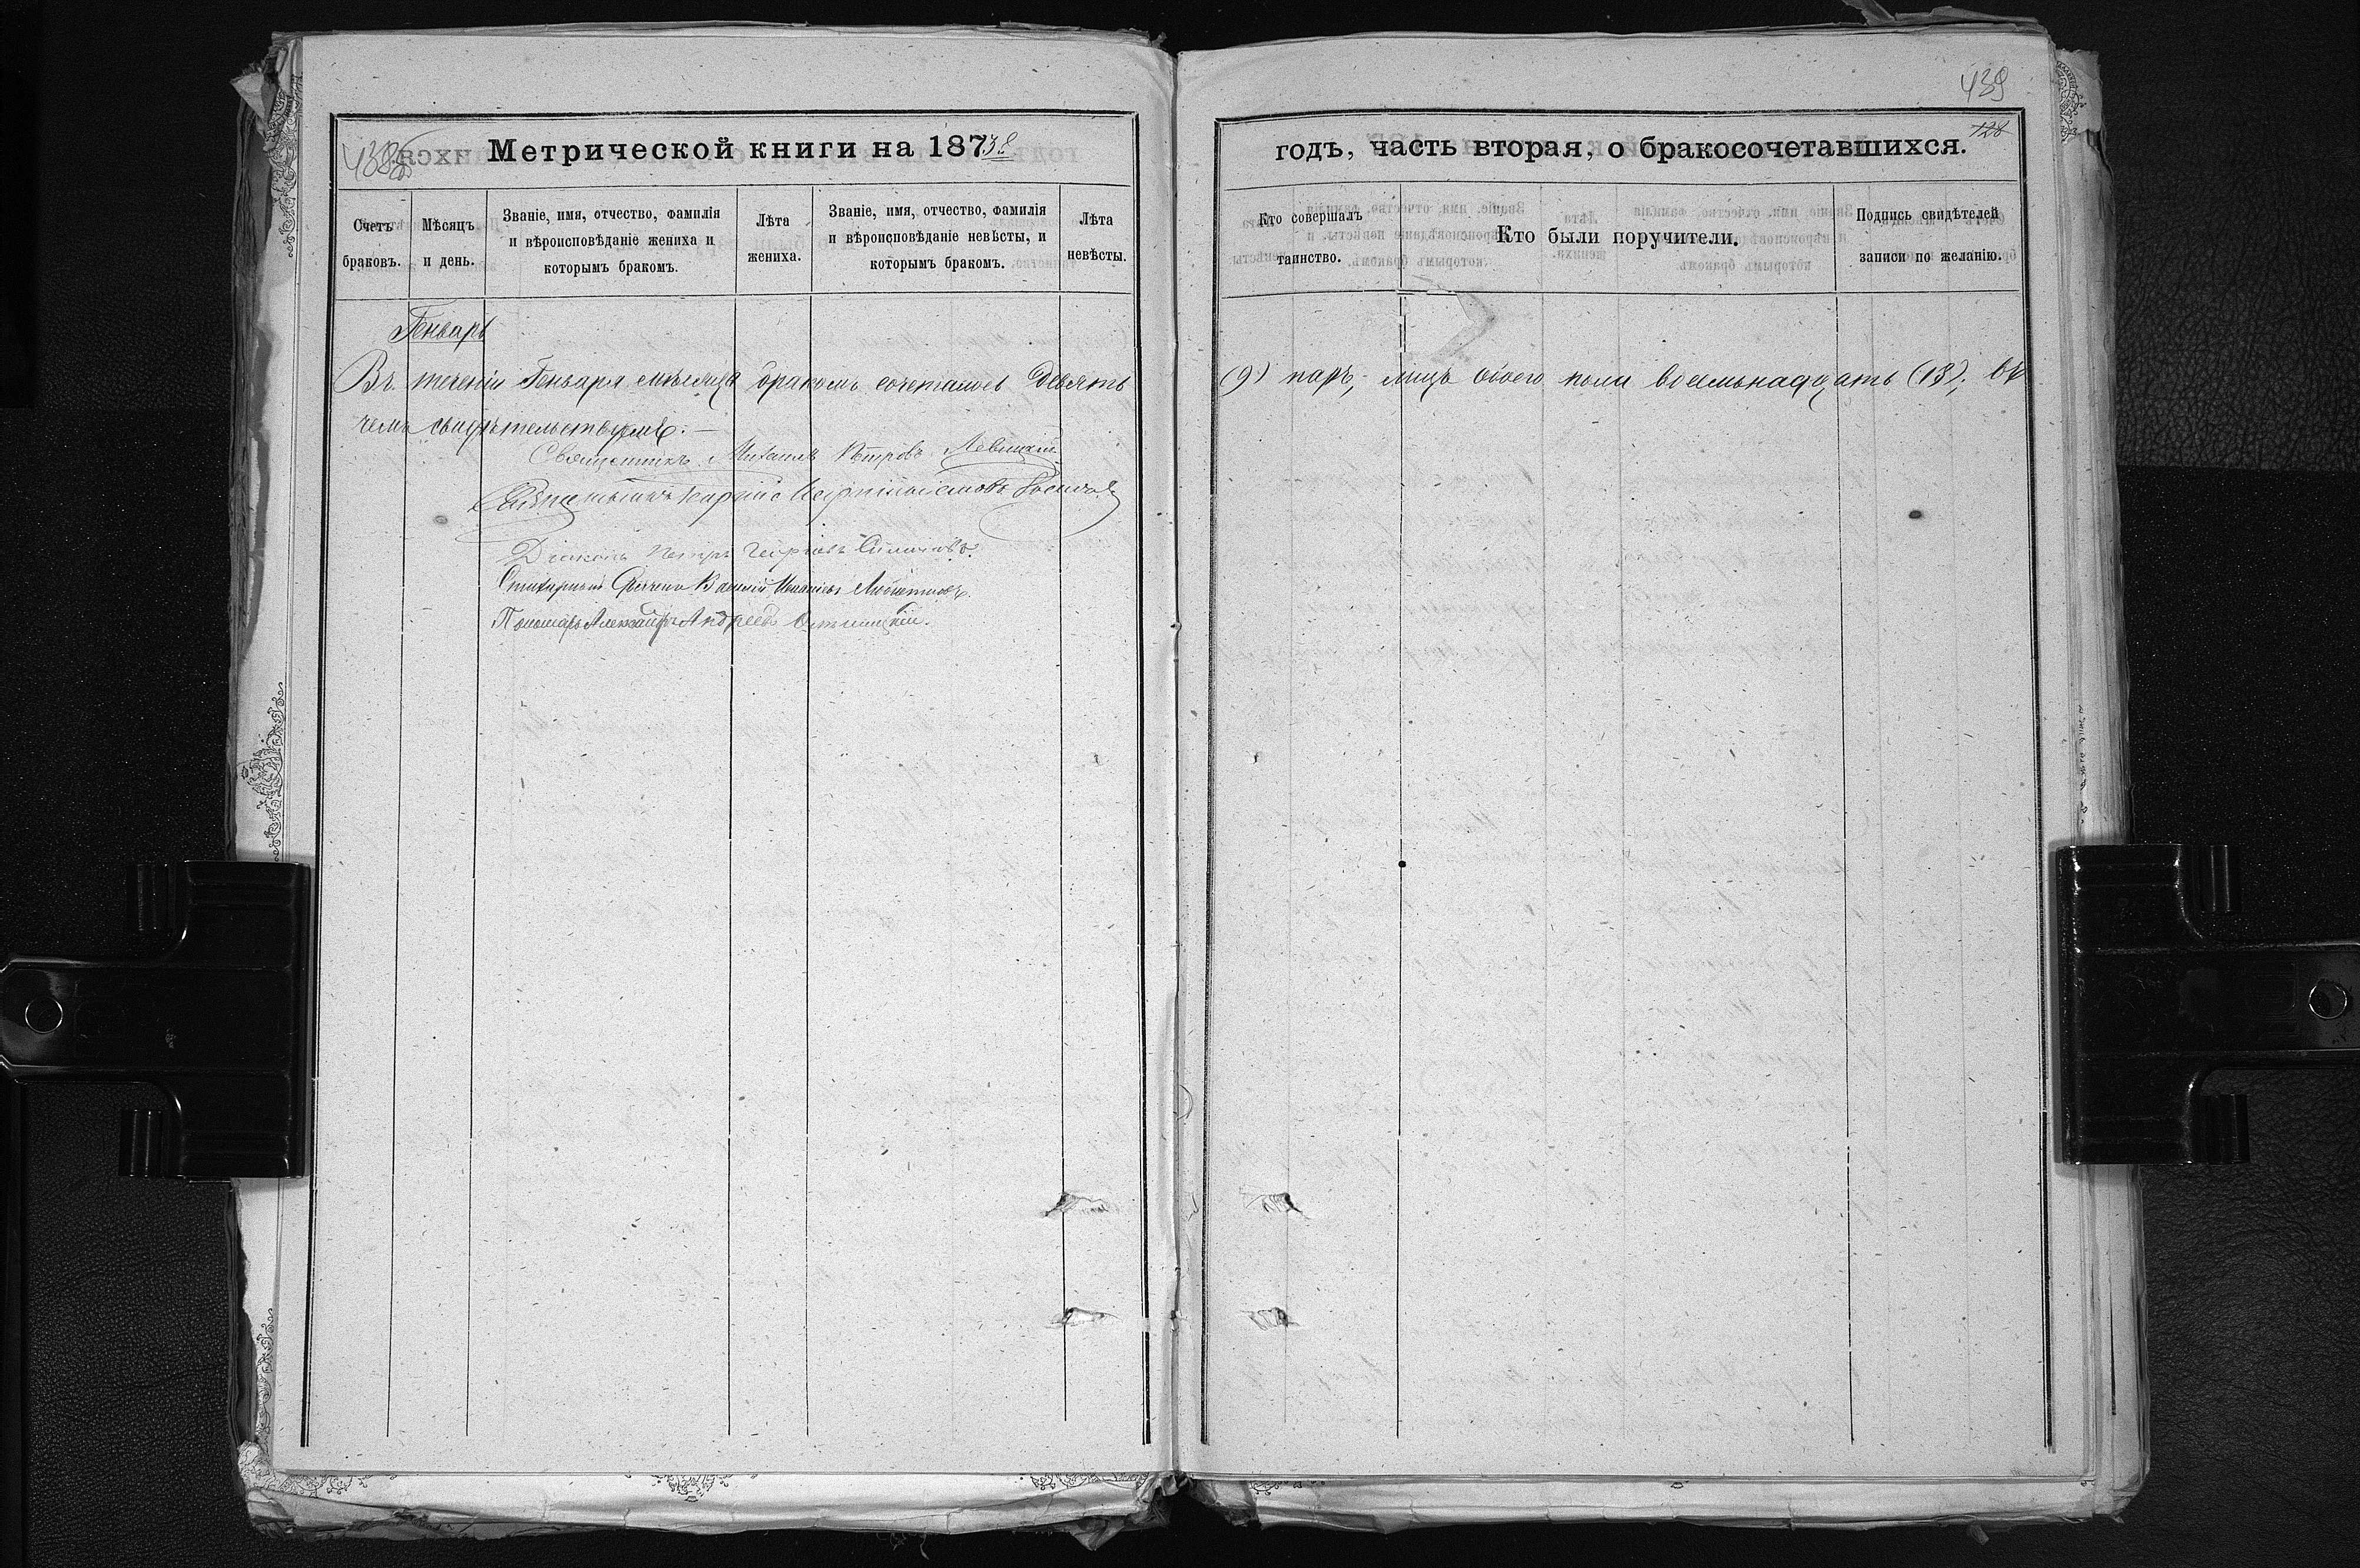 438об
Метрической книги на 1873 г.
Счетъ браковъ.
Мѣсяцъ и день.
Званіе, имя, отчество, фамилія и вѣроисповѣданіе жениха и которымъ бракомъ.
Лѣта жениха.
Званіе, имя, отчество, фамилія и вѣроисповѣданіе невѣсты, и которымъ бракомъ.
Лѣта невѣсты.
Генварь
Въ теченіи Генваря мѣсяца бракомъ сочеталось девять
чемъ свидѣтельствуемъ:
Священникъ Михаилъ Петровъ Левицкій
Діаконъ Петръ Георгіевъ
Стихарный Василій
Пономарь Александръ Андреевъ
439
128
годъ, часть вторая, о бракосочетавшихся.
Кто совершалъ таинство.
Кто были поручители.
Подпись свидѣтелей записи по желанію.
(9) паръ, лицъ обоего пола восемьнадцать (18); въ